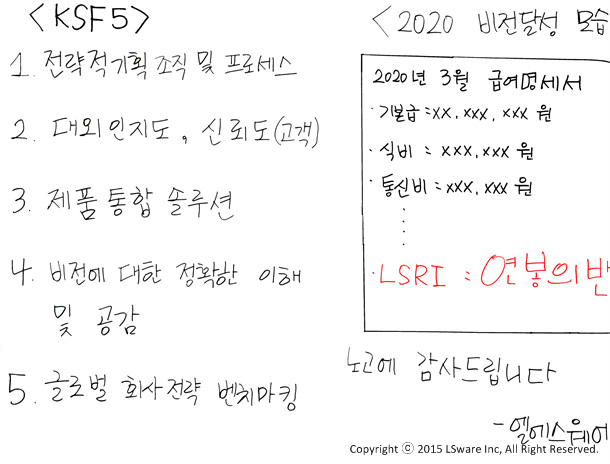 <KSF5>
1. 전략적기획 조직 및 프로세스
2. 대외인지도, 신뢰도(고객)
3. 제품통합 솔루션
4. 비전에 대한 정확한 이해
및 공감
5. 글로벌 회사전략 벤치마킹
<2020 비전달성 모습
2020년 3월 급여명세서
· 기본급 : xx, xxx, xxx 원
· 식비 : xxx, xxx 원
· 통신비 : xxx, xxx 원
· LSRI : 연봉의 반
노고에 감사드립니다
- 엘에스웨어
Copyright ⓒ 2015 LSware Inc, All Right Reserved.